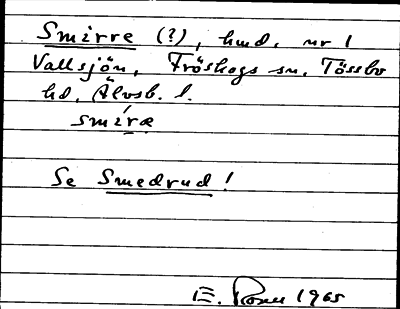 Smirre (?), hmd. nr 1
Vallsjön, Fröskogs sn, Tössbo
hd, Älvsb. l.
smíræ
Se Smedrud!
E. Rosen 1965